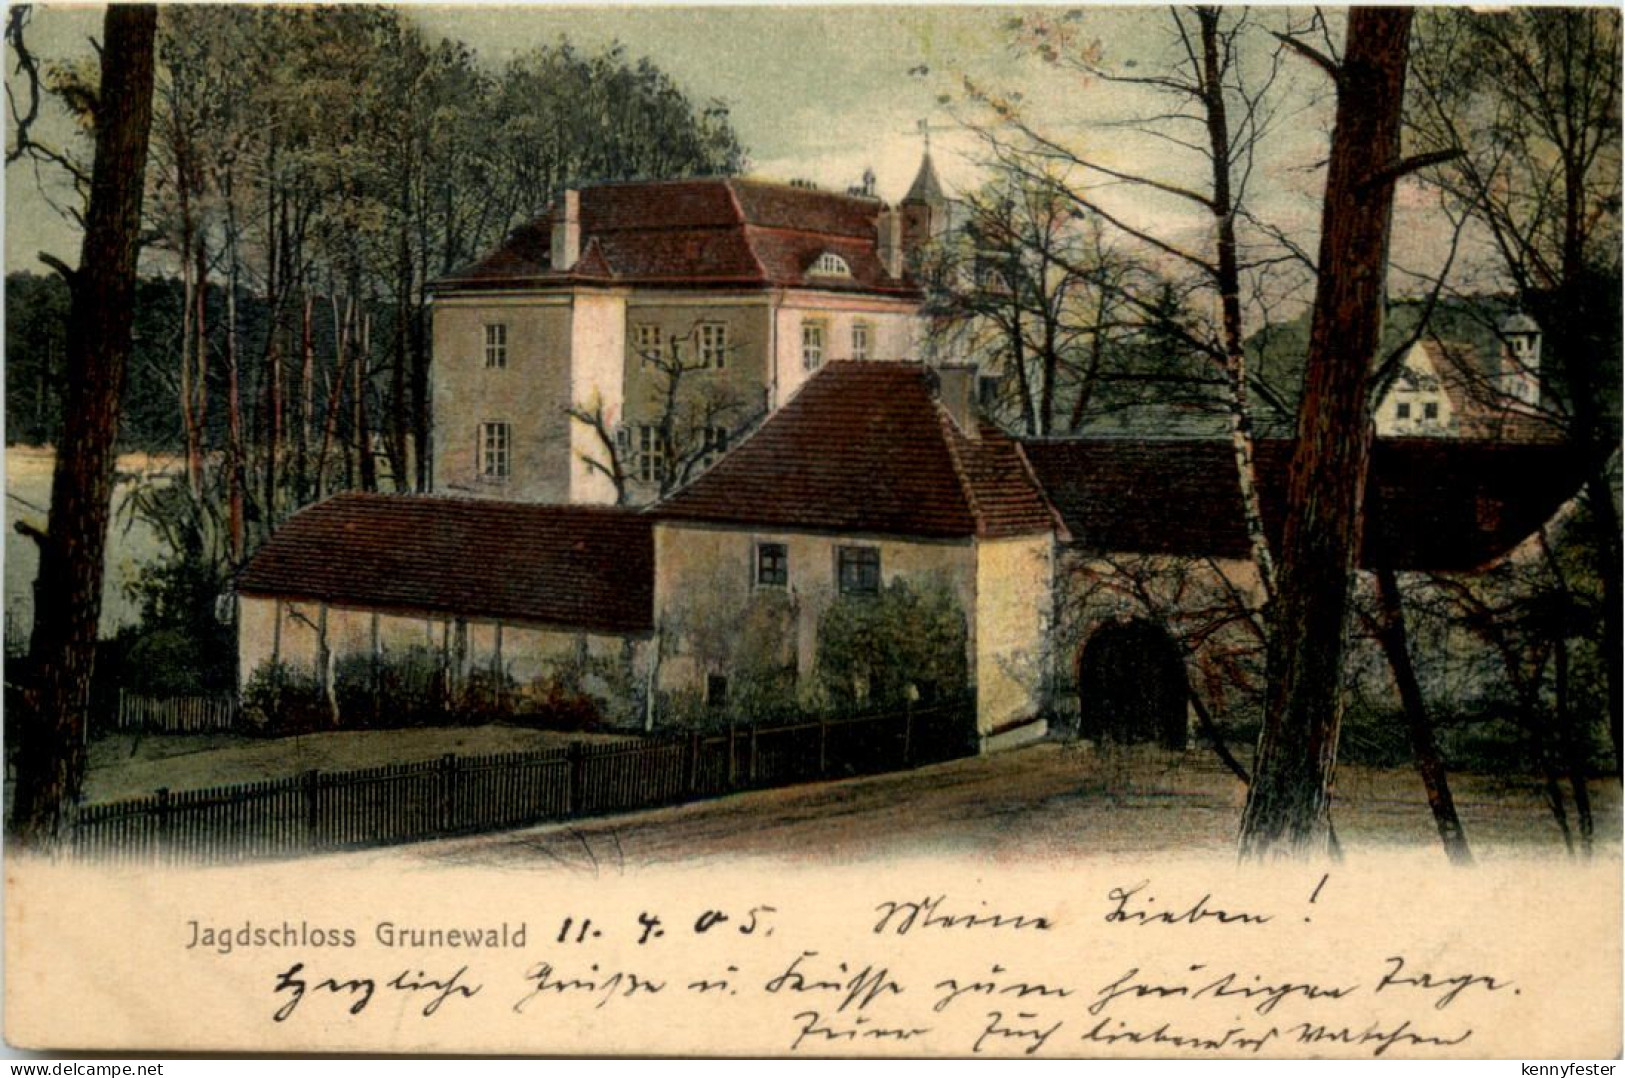 Jagdschloss Grunewald 11. 4. 05. Meine Lieben!
Herzliche Grüße u. Küsse zum heutigen Tage.
Euer Euch liebendes
delcampe.net kennyfester